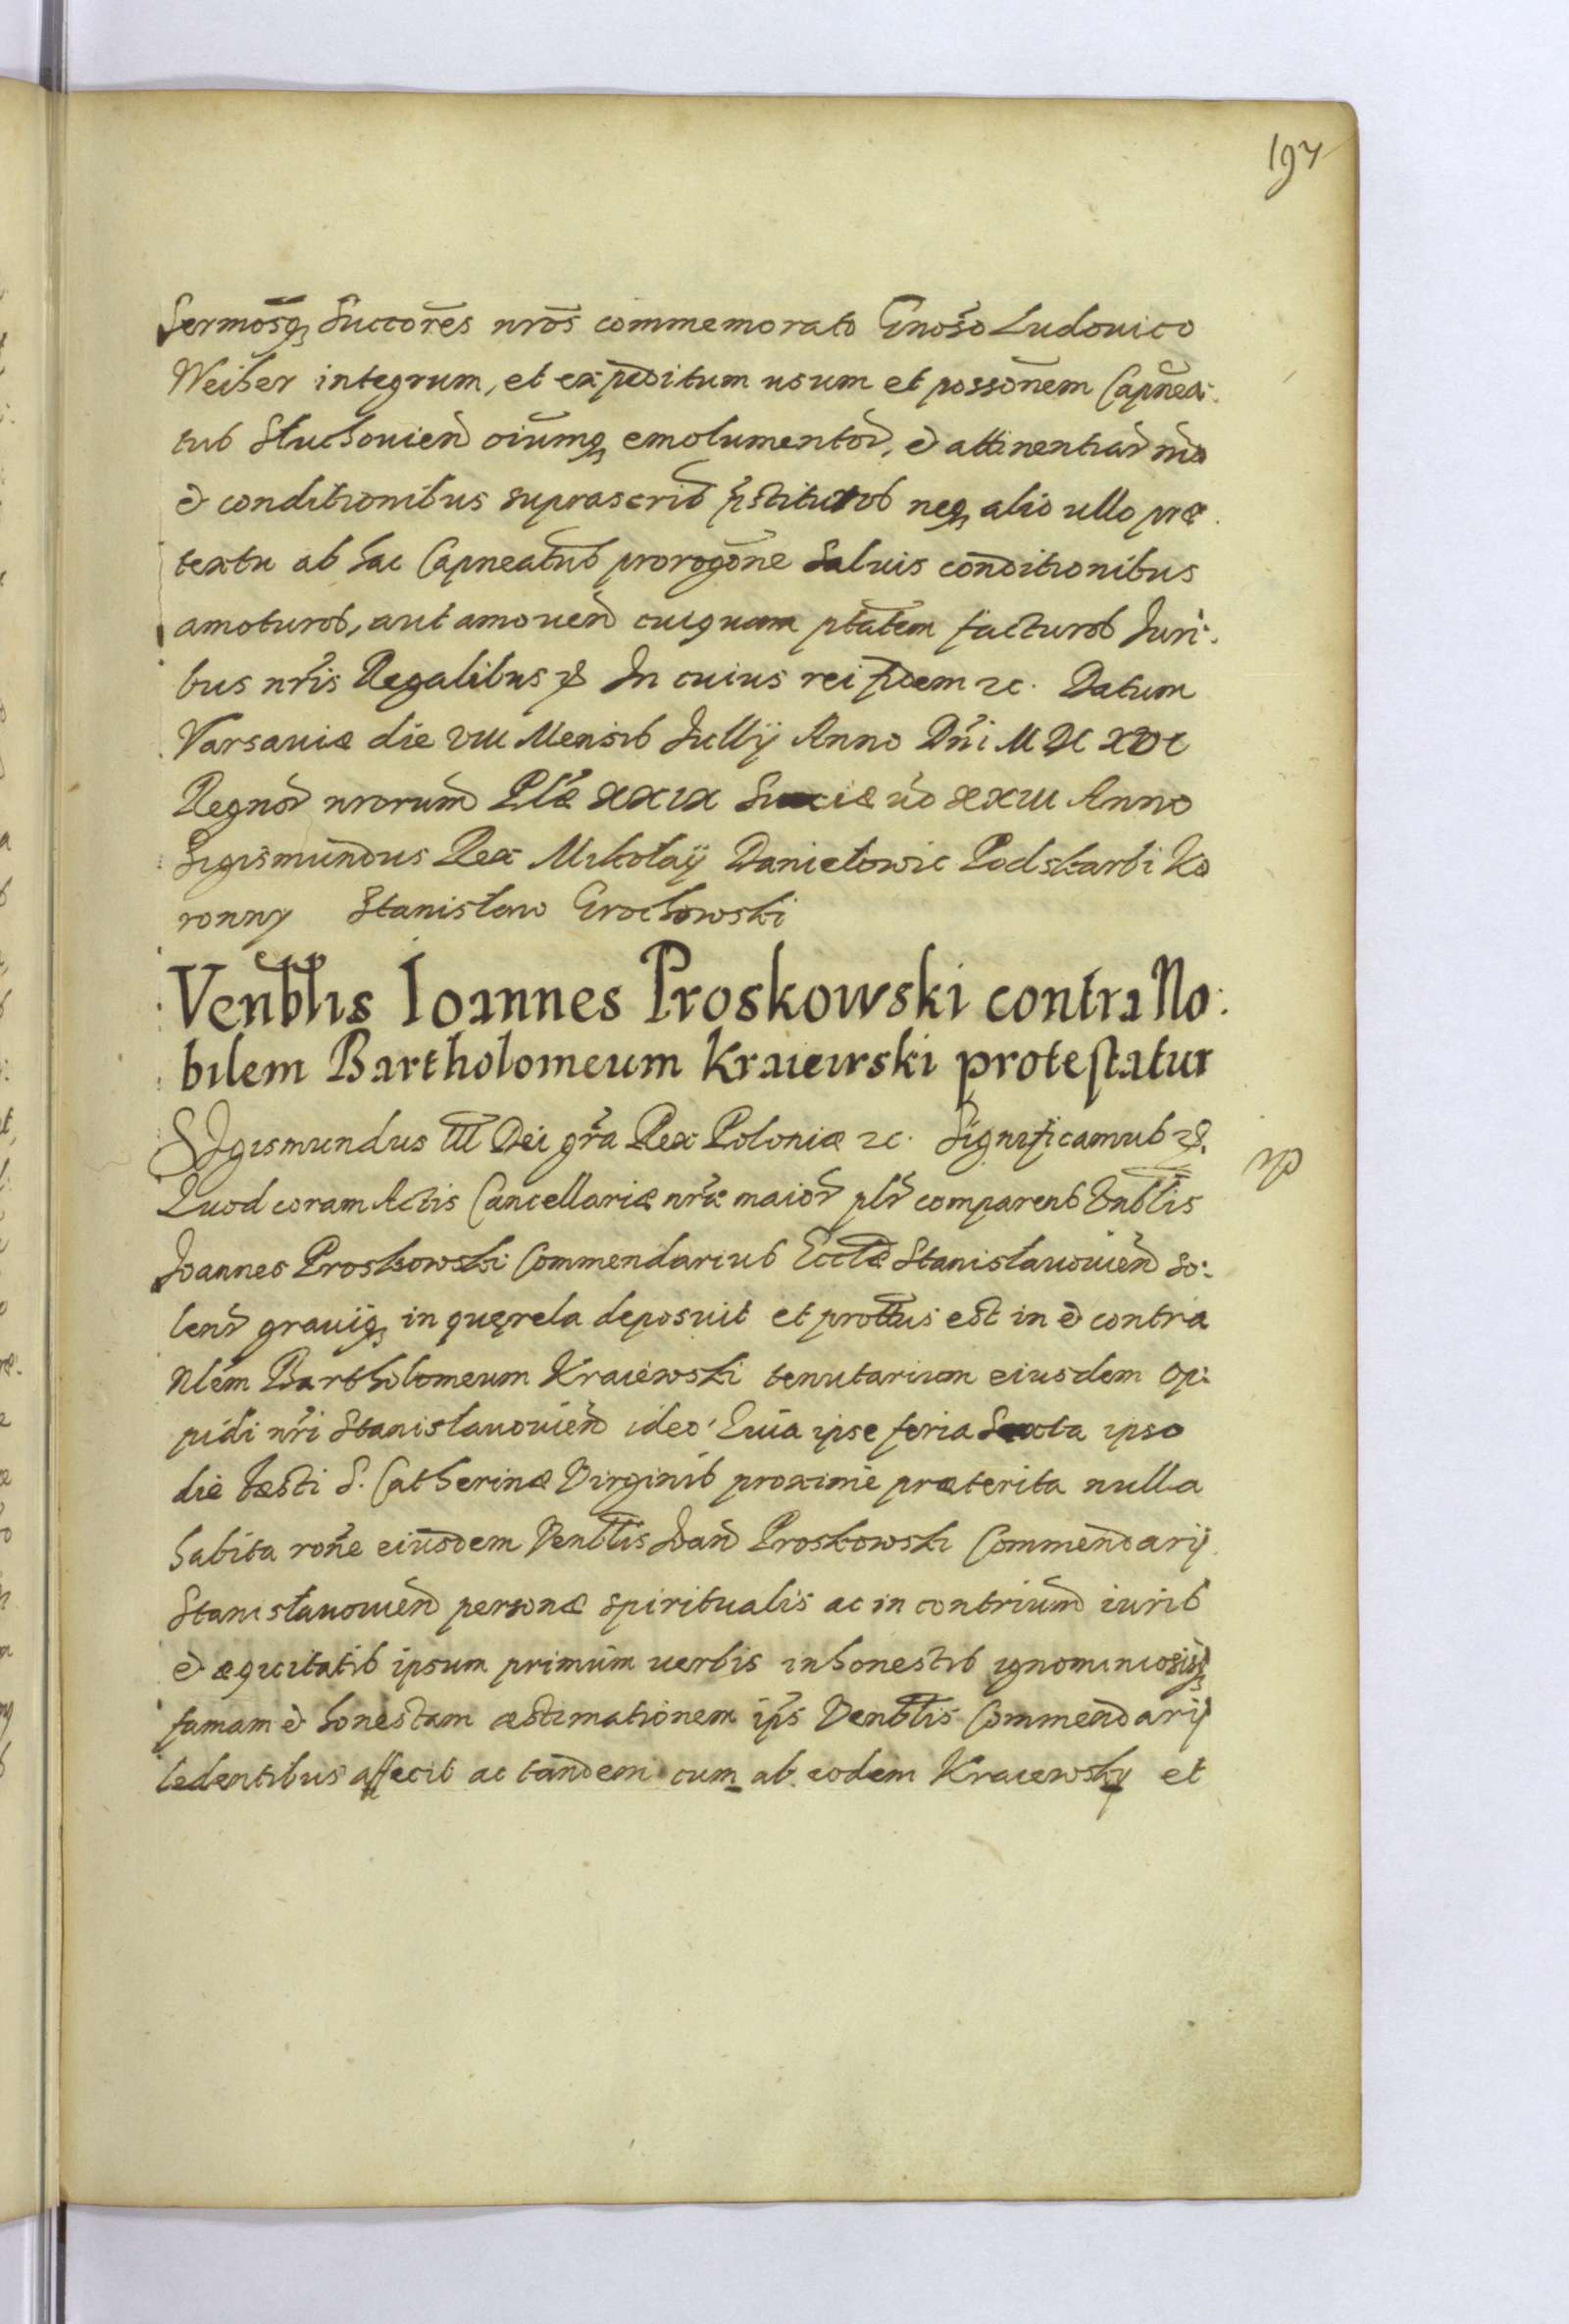 197
Sermosq, Succores nros commemorato Gnoso Ludouico
Weiher integrum, et expeditum usum et possonem Capnea:
tus Sluchouien oiumq, emolumentor, et attinentiar
et conditionibus suprascris pstituros neq, alio ullo præ
textu ab hac Capneatus prorogone saluis conditionibus
amoturos, aut amouen cuiquam ptatem facturos Juri:
bus nris Regalibus etc In cuius rei fidem etc. Datum
Varsauiæ die VIII Mensis Jullÿ Anno Dni M DC XVI
Regnor nrorum Plæ XXIX Sueciæ uo XXIII Anno
Sigismundus Rex Mikołaÿ Daniełowic Podskarbi Ko
ronny Stanisław Grochowski
Venblis Ioannes Proskowski contra No:
bilem Bartholomeum Kraiewski protestatur
SIgismundus III Dei gra Rex Poloniæ etc. Significamus etc.
Quod coram Actis Cancellariæ nræ maior plr comparens Vnblis
Joannes Proskowski Commendarius Ecclæ Stanisłauouien so:
lenr grauiq, in quęrela deposuit et prottus est in et contra
Nlem Bartholomeum Kraiewski tenutarium eiusdem op:
pidi nri Stanisłauouien ideo Quia ipse feria Sexta ipso
die festi S. Catherinæ Virginis proxime præterita nulla
habita rone eiusdem Venblis Joan Proskowski Commendarÿ
Stanisłauouien personæ spiritualis ac in contrium iuris
et æquitatis ipsum primum uerbis inhonestis ignominiosisq,
famam et honestam æstimationem ips Venblis Commendarÿ
ledentibus affecit ac tandem cum ab eodem Kraiewsky et